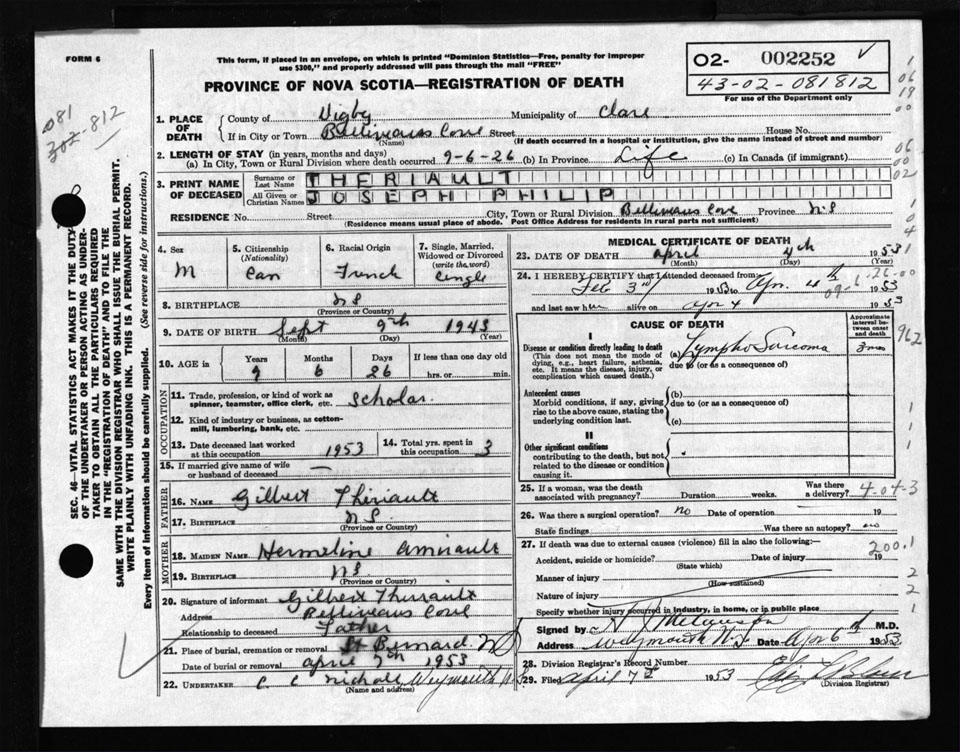 FORM 6
This form, if placed in an envelope, on which is printed "Dominion Statistics—Free, penalty for improper
use $300," and properly addressed will pass through the mail "FREE"
PROVINCE OF NOVA SCOTIA—REGISTRATION OF DEATH
O2- 002252
43-02-081812
For use of the Department only
081
302-812
1. PLACE OF DEATH County of Digby Municipality of Clare
If in City or Town Belliveaus Cove Street House No.
(Name) (If death occurred in a hospital or institution, give the name instead of street and number)
2. LENGTH OF STAY (in years, months and days)
(a) In City, Town or Rural Division where death occurred 9-6-26 (b) In Province Life (c) In Canada (if immigrant)
3. PRINT NAME OF DECEASED Surname or Last Name THERIAULT
All Given or Christian Names JOSEPH PHILIP
RESIDENCE No. Street City, Town or Rural Division Belliveaus Cove Province N.S
(Residence means usual place of abode. Post Office Address for residents in rural parts not sufficient)
4. Sex M
5. Citizenship (Nationality) Can
6. Racial Origin French
7. Single, Married, Widowed or Divorced (write the word) Cingle
8. BIRTHPLACE N S
(Province or Country)
9. DATE OF BIRTH Sept 9th 1943
(Month) (Day) (Year)
10. AGE in Years Months Days If less than one day old
9 6 26 hrs. or min.
OCCUPATION
11. Trade, profession, or kind of work as
spinner, teamster, office clerk, etc. Scholar.
12. Kind of industry or business, as cotton-
mill, lumbering, bank, etc.
13. Date deceased last worked at this occupation 1953
14. Total yrs. spent in this occupation 3
15. If married give name of wife
or husband of deceased —
FATHER
16. NAME Gilbert Thiriault
17. BIRTHPLACE N S.
(Province or Country)
MOTHER
18. MAIDEN NAME Hermeline Amirault
19. BIRTHPLACE NS.
(Province or Country)
20. Signature of informant Gilbert Thiriault
Address Belliveaus Cove
Relationship to deceased Father
21. Place of burial, cremation or removal St Bernard NS
Date of burial or removal April 7th 1953
22. UNDERTAKER C C Nichols Weymouth N.S.
(Name and address)
MEDICAL CERTIFICATE OF DEATH
23. DATE OF DEATH April 4th 1953
(Month) (Day) (Year)
24. I HEREBY CERTIFY that I attended deceased from:
Feb 3rd 1953 to Apr. 4th 1953
and last saw him alive on Apr 4 1953
CAUSE OF DEATH
Approximate interval between onset and death
I
Disease or condition directly leading to death (a) Lympho Sarcoma 3 mos
(This does not mean the mode of due to (or as a consequence of)
dying, e.g., heart failure, asthenia,
etc. It means the disease, injury, or
complication which caused death.)
Antecedent causes (b)
Morbid conditions, if any, giving due to (or as a consequence of)
rise to the above cause, stating the
underlying condition last. (c)
II
Other significant conditions
contributing to the death, but not
related to the disease or condition
causing it.
25. If a woman, was the death
associated with pregnancy? Duration weeks. Was there a delivery? 4-04-3
26. Was there a surgical operation? no Date of operation 19
State findings Was there an autopsy? no
27. If death was due to external causes (violence) fill in also the following:
Accident, suicide or homicide? Date of injury 19
(State which)
200.1
Manner of injury
(How sustained)
Nature of injury
Specify whether injury occurred in industry, in home, or in public place
Signed by M.D.
Address Weymouth N.S. Date Apr 6th 1953
28. Division Registrar's Record Number
29. Filed April 7th 1953
(Division Registrar)
962
SEC. 46—VITAL STATISTICS ACT MAKES IT THE DUTY
OF THE UNDERTAKER OR PERSON ACTING AS UNDER-
TAKER TO OBTAIN ALL THE PARTICULARS REQUIRED
IN THE "REGISTRATION OF DEATH" AND TO FILE THE
SAME WITH THE DIVISION REGISTRAR WHO SHALL ISSUE THE BURIAL PERMIT.
WRITE PLAINLY WITH UNFADING INK. THIS IS A PERMANENT RECORD.
Every item of Information should be carefully supplied. (See reverse side for instructions.)